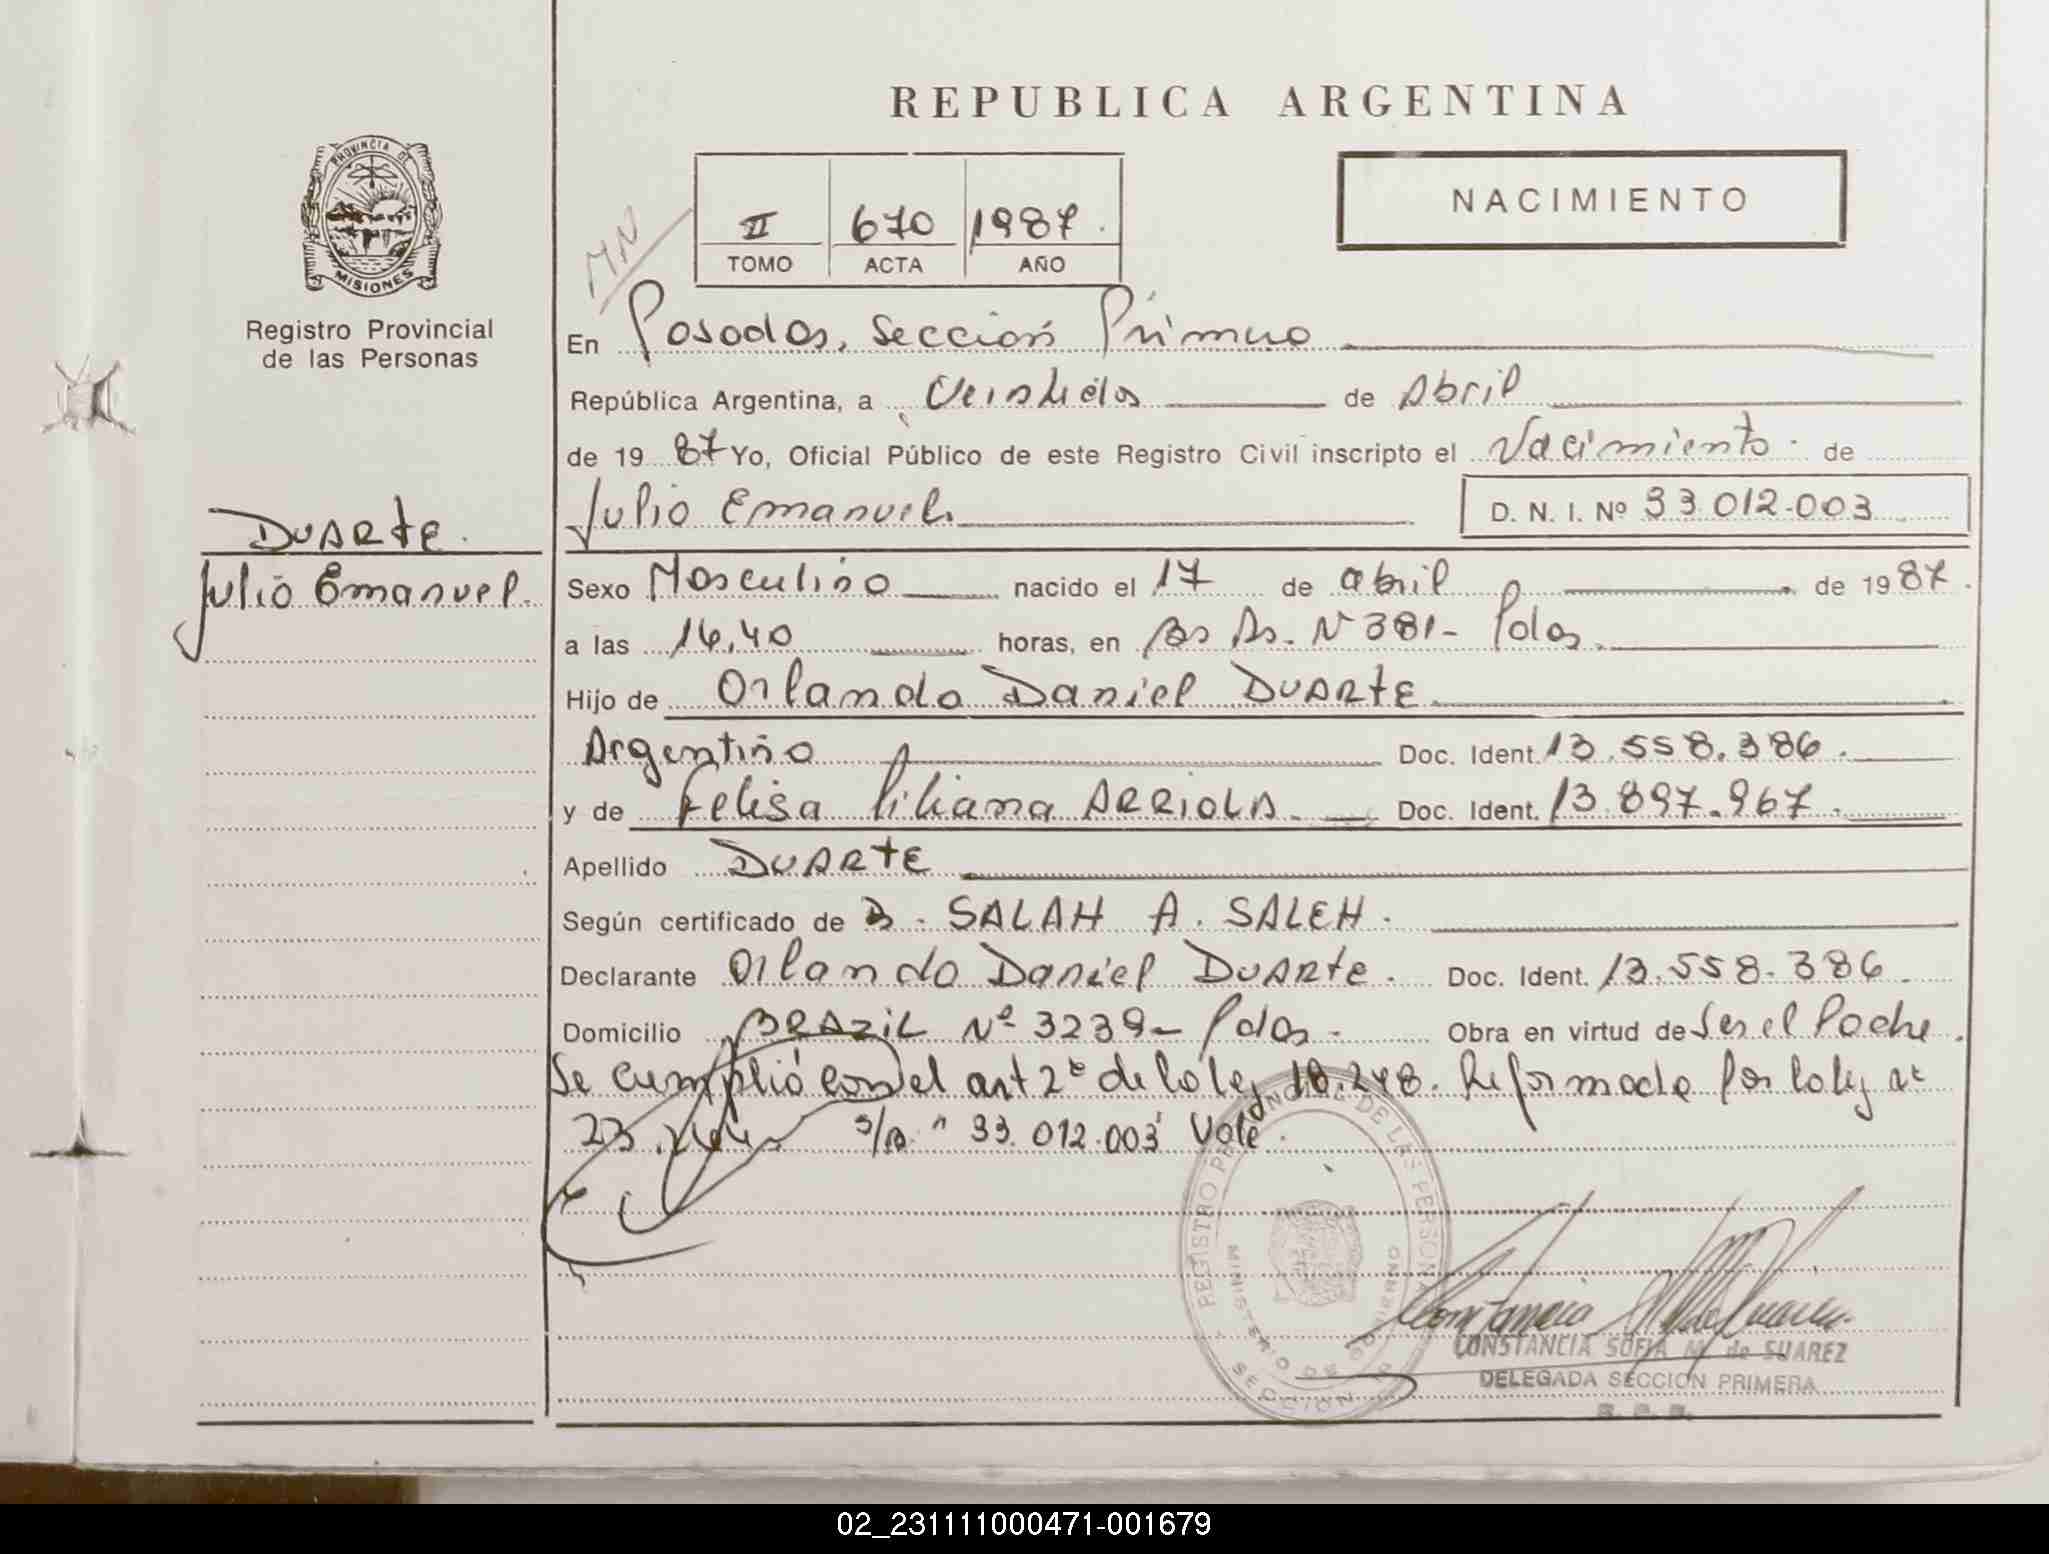 REPUBLICA ARGENTINA
PROVINCIA DE
MISIONES
Registro Provincial
de las Personas
MN
II 670 1987.
TOMO ACTA AÑO
NACIMIENTO
En Posadas, Sección Primera
República Argentina, a Veintidos de Abril
de 1987 Yo, Oficial Público de este Registro Civil inscripto el Nacimiento de
Julio Emanuel. D. N. I. Nº 33.012.003
DUARTE.
Julio Emanuel.
Sexo Masculino nacido el 17 de abril de 1987.
a las 14,40 horas, en Bs As. Nº 381- Pdas.
Hijo de Orlando Daniel DUARTE
Argentino Doc. Ident. 13.558.386.
y de Felisa Liliana ARRIOLA. Doc. Ident. 13.897.967.
Apellido DUARTE
Según certificado de D. SALAH A. SALEH.
Declarante Orlando Daniel DUARTE. Doc. Ident. 13.558.386.
Domicilio BRAZIL Nº 3239- Pdas. Obra en virtud de Ser el Padre.
Se cumplió con el art 2º de la ley 18.248. Reformada por la ley nº
23. s/r. " 33.012.003" Vale.
REGISTRO PROVINCIAL DE LAS PERSONAS
MINISTERIO DE GOBIERNO
SECCION
CONSTANCIA SOFIA M. de SUAREZ
DELEGADA SECCION PRIMERA
02_231111000471-001679